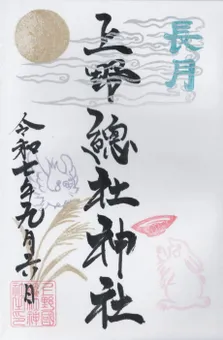 長月
上野總社神社
令和七年九月六日